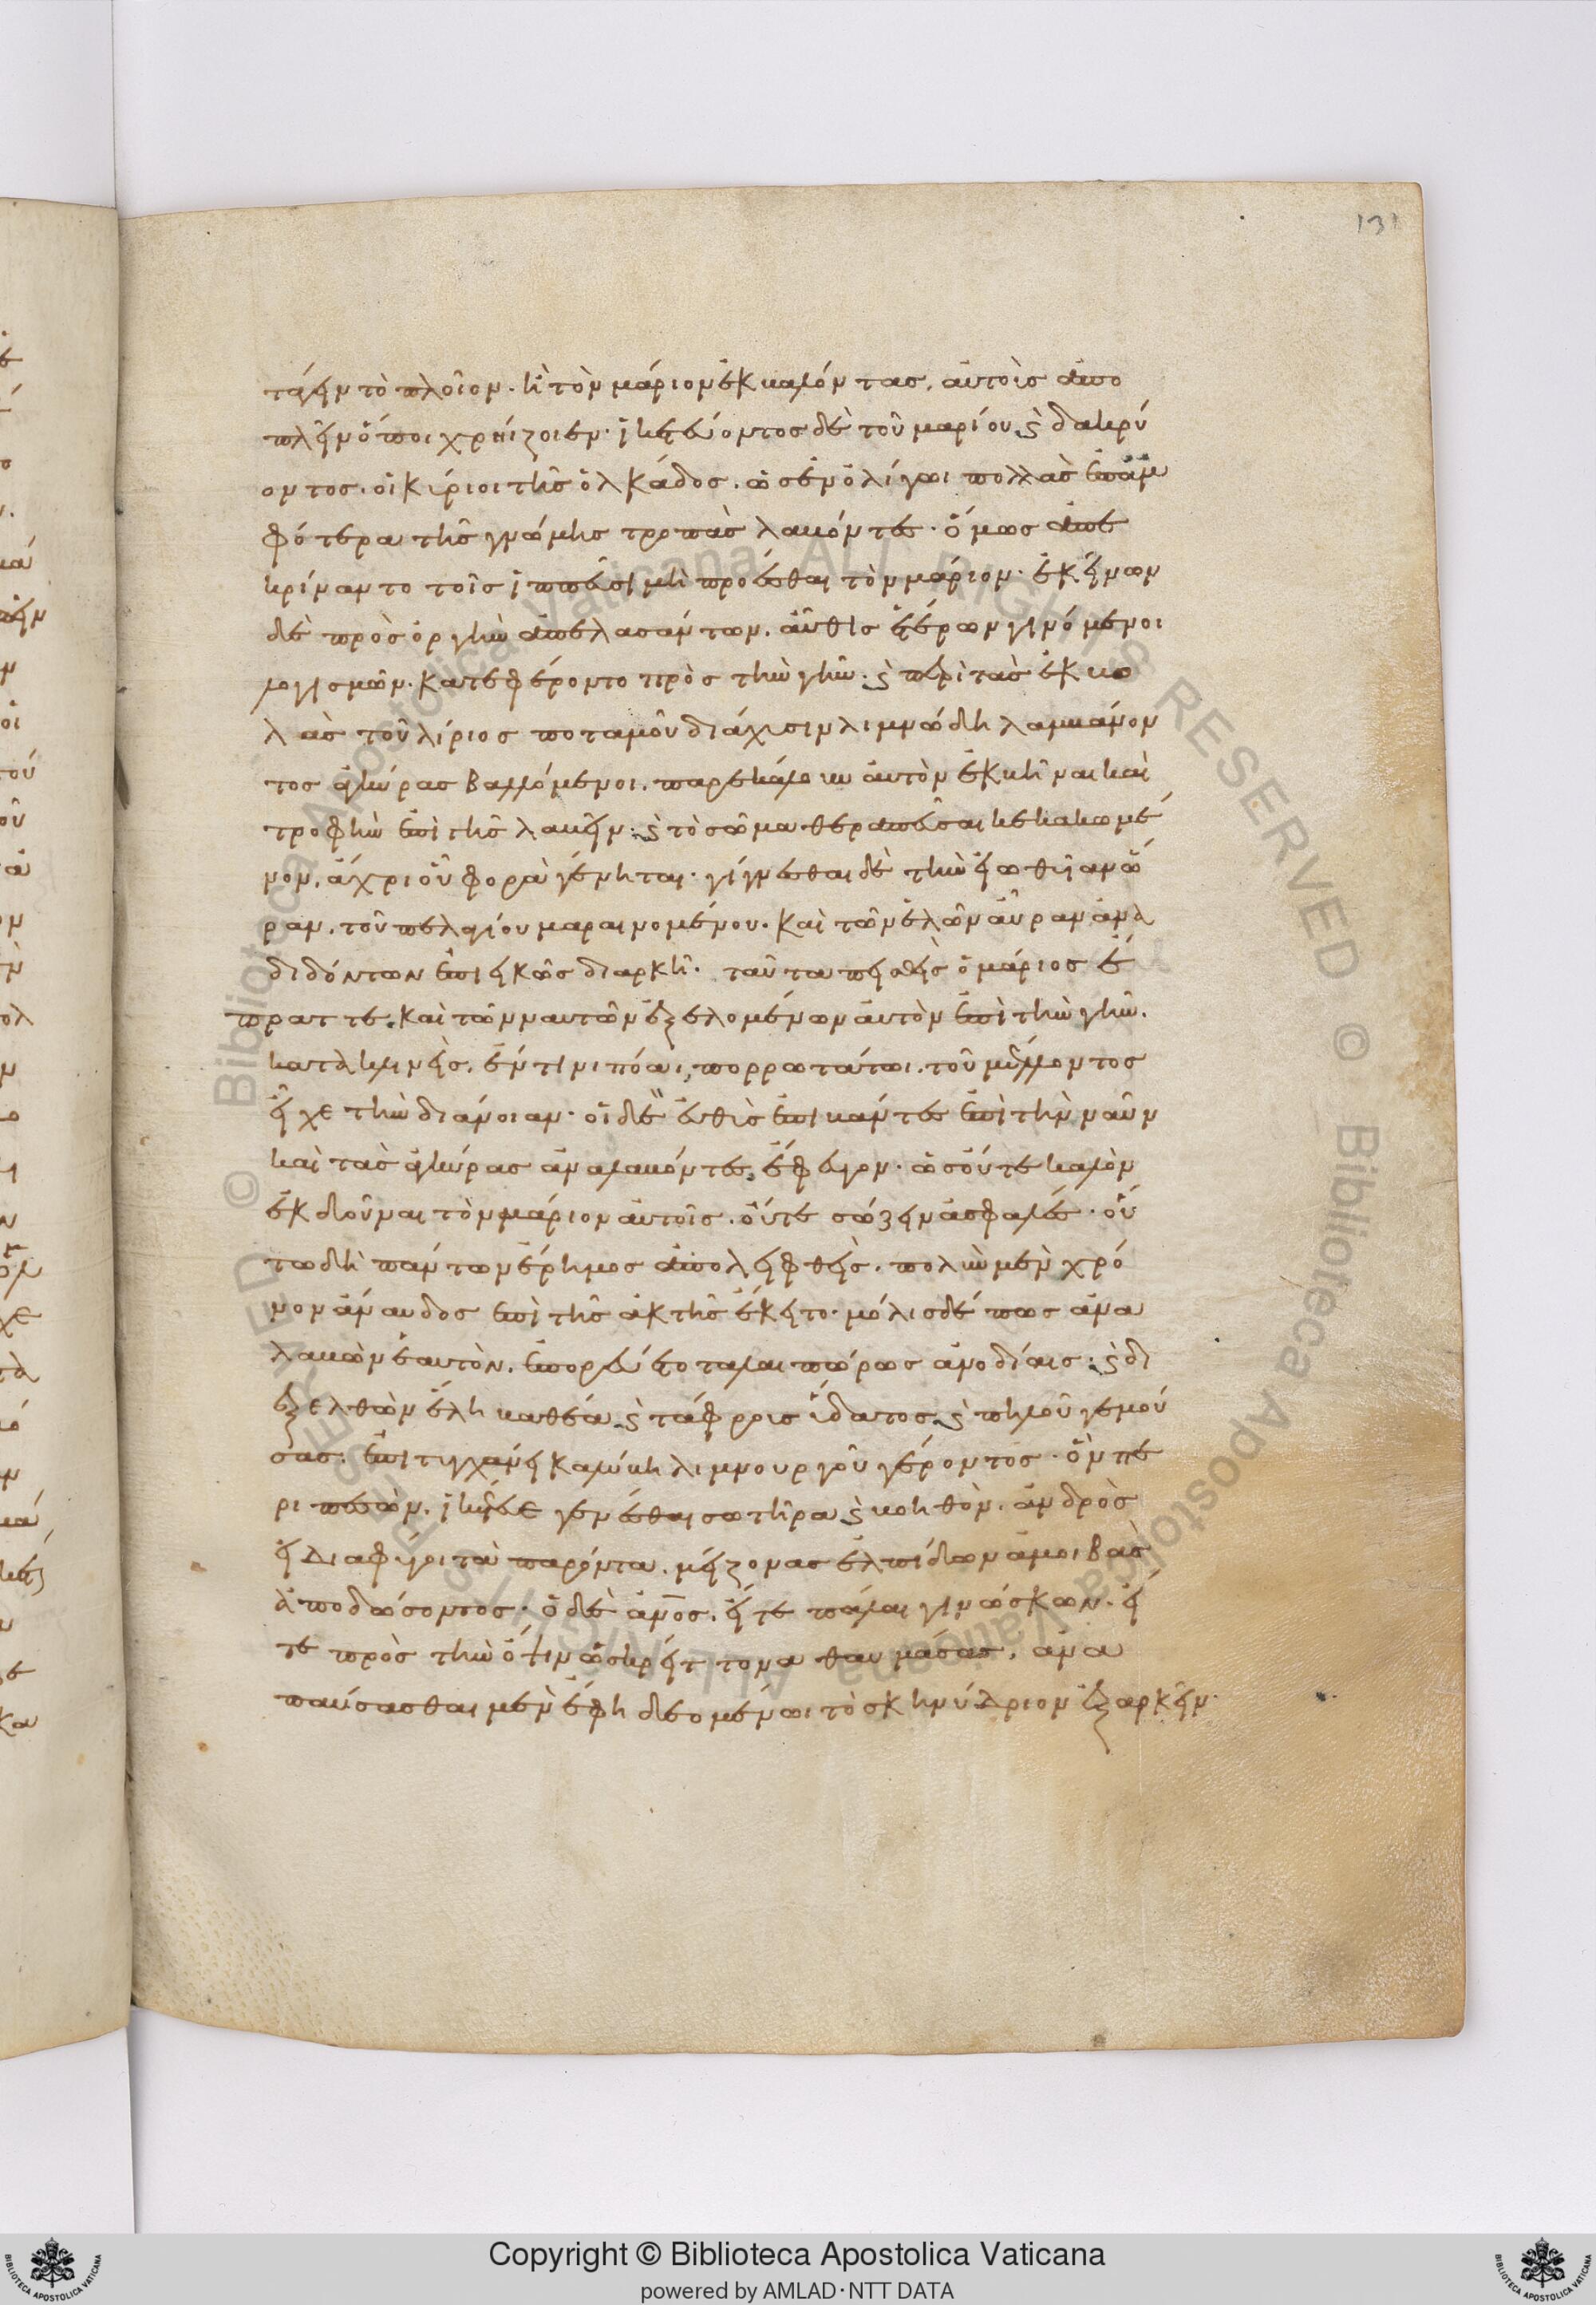 131
τάγειν τὸ πλοῖον· ἢ τὸν μάριον ἐκβαλόντας, αὐτοὺς ἀπο
πλεῖν ὅποι χρήζοιεν· ἱκετεύοντος δὲ τοῦ μαρίου ϗ δακρύ
οντος· οἱ κύριοι τῆς ὁλκάδος, ὡς ἐν ὀλίγωι πολλὰς ἐπ' ἀμ
φότερα τῆς γνώμης τροπὰς λαβόντες· ὅμως ἀπε
κρίναντο τοῖς ἱππεῦσι μὴ προέσθαι τὸν μάριον· ἐκείνων
δὲ πρὸς ὀργὴν ἀπελασάντων, αὖθις ἑτέρων γινόμενοι
λογισμῶν· κατεφέροντο πρὸς τὴν γῆν· ϗ περὶ τὰς ἐκβο
λὰς τοῦ λίριος ποταμοῦ διάχυσιν λιμνώδη λαμβάνον
τος ἀγκύρας βαλλόμενοι, παρεκάλουν αὐτὸν ἐκβῆναι καὶ
τροφὴν ἐπὶ τῆς λαβεῖν· ϗ τὸ σῶμα θεραπεῦσαι κεκακωμέ
νον, ἄχρι οὗ φορὰ γένηται· γίγνεσθαι δὲ τὴν εἰωθυῖαν ὥ
ραν, τοῦ πελαγίου μαραινομένου· καὶ τῶν ἑλῶν αὔραν ἀνα
διδόντων ἐπιεικῶς διαρκῆ· ταῦτα πεισθεὶς ὁ μάριος ἔ
πραττε, καὶ τῶν ναυτῶν ἐξελομένων αὐτὸν ἐπὶ τὴν γῆν,
κατακλινεὶς, ἔν τινι πόαι, πορρωτάτωι τοῦ μέλλοντος
εἶχε τὴν διάνοιαν· οἱ δὲ εὐθὺς ἐπιβάντες ἐπὶ τὴν ναῦν
καὶ τὰς ἀγκύρας ἀναλαβόντες, ἔφευγον· ὡς οὔτε καλὸν
ἐκδοῦναι τὸν μάριον αὐτοῖς, οὔτε σώζειν ἀσφαλές· οὕ
τω δὴ πάντων ἔρημος ἀπολειφθεὶς, πολὺν μὲν χρό
νον ἄναυδος ἐπὶ τῆς ἀκτῆς ἔκειτο· μόλις δέ πως ἀνα
λαβὼν ἑαυτὸν, ἐπορεύετο ταλαιπώρως ἀνοδίαις· ϗ δι
εξελθὼν ἕλη βαθέα ϗ τάφρους ὕδατος ϗ πηλοῦ γεμού
σας, ἐπιτυγχάνει καλύβη λιμνουργοῦ γέροντος· ὃν πε
ριπεσὼν, ἱκέτευε γενέσθαι σωτῆρα ϗ βοηθὸν, ἀνδρὸς
εἰ διαφύγοι τὰ παρόντα, μείζονας ἐλπίδων ἀμοιβὰς
ἀποδώσοντος· ὁ δὲ ἄν̅ος, εἴτε πάλαι γινώσκων, εἴ
τε πρὸς τὴν ὄψιν ὡς κρείττονα θαυμάσας, ἀνα
παύσασθαι μὲν ἔφη δεομένωι τὸ σκηνύδριον ἐξαρκεῖν·